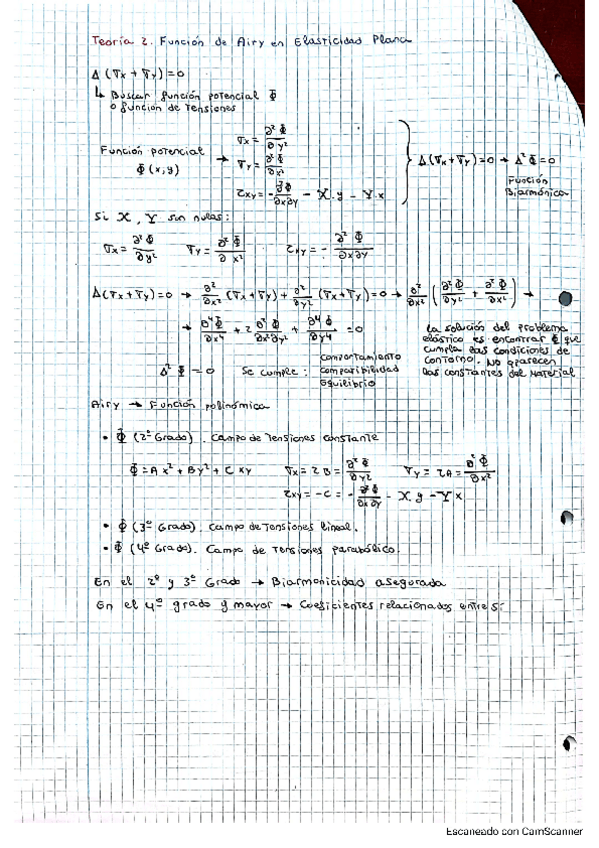 Teoría 2. Función de Airy en Elasticidad Plana
Δ(σx + σy) = 0
↳ Buscar función potencial Φ
o función de tensiones
Función potencial Φ(x,y) →
σx = ∂²Φ/∂y²
σy = ∂²Φ/∂x²
τxy = -∂²Φ/∂x∂y - X·y - Y·x
} Δ(σx + σy) = 0 → Δ²Φ = 0
Función
Biarmónica
Si X, Y son nulas:
σx = ∂²Φ/∂y² σy = ∂²Φ/∂x² τxy = - ∂²Φ/∂x∂y
Δ(σx + σy) = 0 → ∂²/∂x² (σx + σy) + ∂²/∂y² (σx + σy) = 0 → ∂²/∂x² (∂²Φ/∂y² + ∂²Φ/∂x²) →
→ ∂⁴Φ/∂x⁴ + 2 ∂⁴Φ/∂x²∂y² + ∂⁴Φ/∂y⁴ = 0
La solución del problema
elástico es encontrar Φ que
cumpla las condiciones de
contorno. No aparecen
las constantes del material
Δ²Φ = 0 Se cumple:
comportamiento
compatibilidad
equilibrio
Airy → Función polinómica
• Φ (2º Grado). Campo de tensiones constante
Φ = Ax² + By² + Cxy σx = 2B = ∂²Φ/∂y² σy = 2A = ∂²Φ/∂x²
τxy = -C = - ∂²Φ/∂x∂y - X·y - Y·x
• Φ (3º Grado). Campo de Tensiones lineal.
• Φ (4º Grado). Campo de Tensiones parabólico.
En el 2º y 3º Grado → Biarmonicidad asegurada
En el 4º grado y mayor → Coeficientes relacionados entre sí
Escaneado con CamScanner